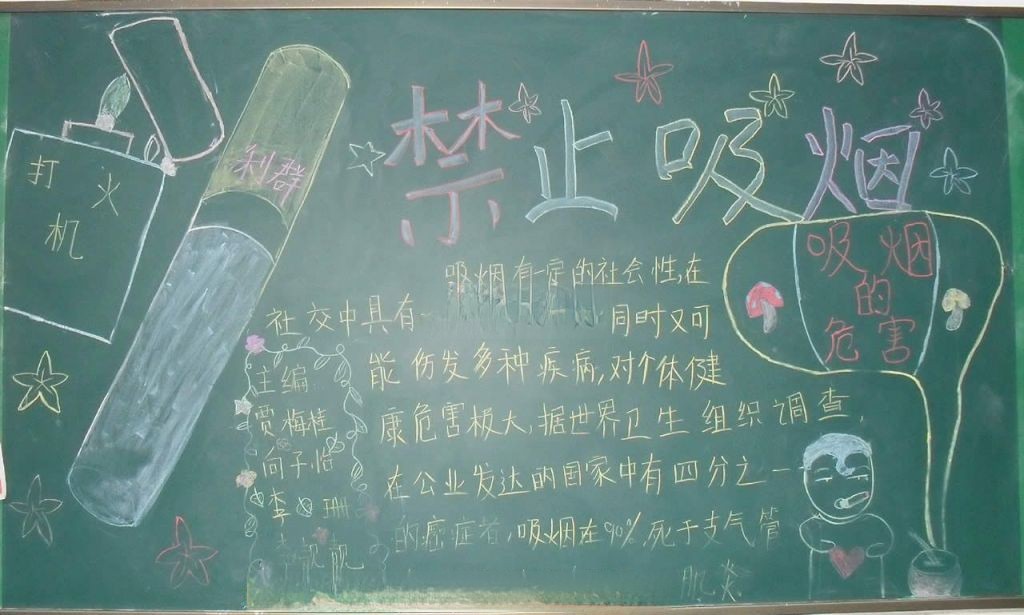 禁止吸烟
打火
机
利群
吸烟
的
危害
吸烟有一定的社会性,在
社交中具有 同时又可
能伤发多种疾病,对个体健
康危害极大,据世界卫生组织调查,
在公业发达的国家中有四分之一
的癌症者,吸烟在90%死于支气管
肌炎
主编
贾梅桂
向子怡
李 珊
李靓靓